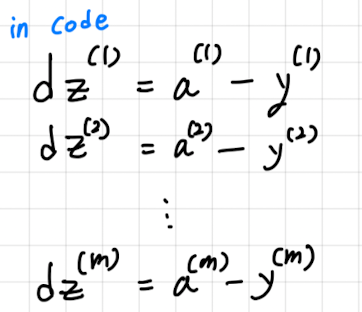 in code
dz^(1) = a^(1) - y^(1)
dz^(2) = a^(2) - y^(2)
⋮
dz^(m) = a^(m) - y^(m)